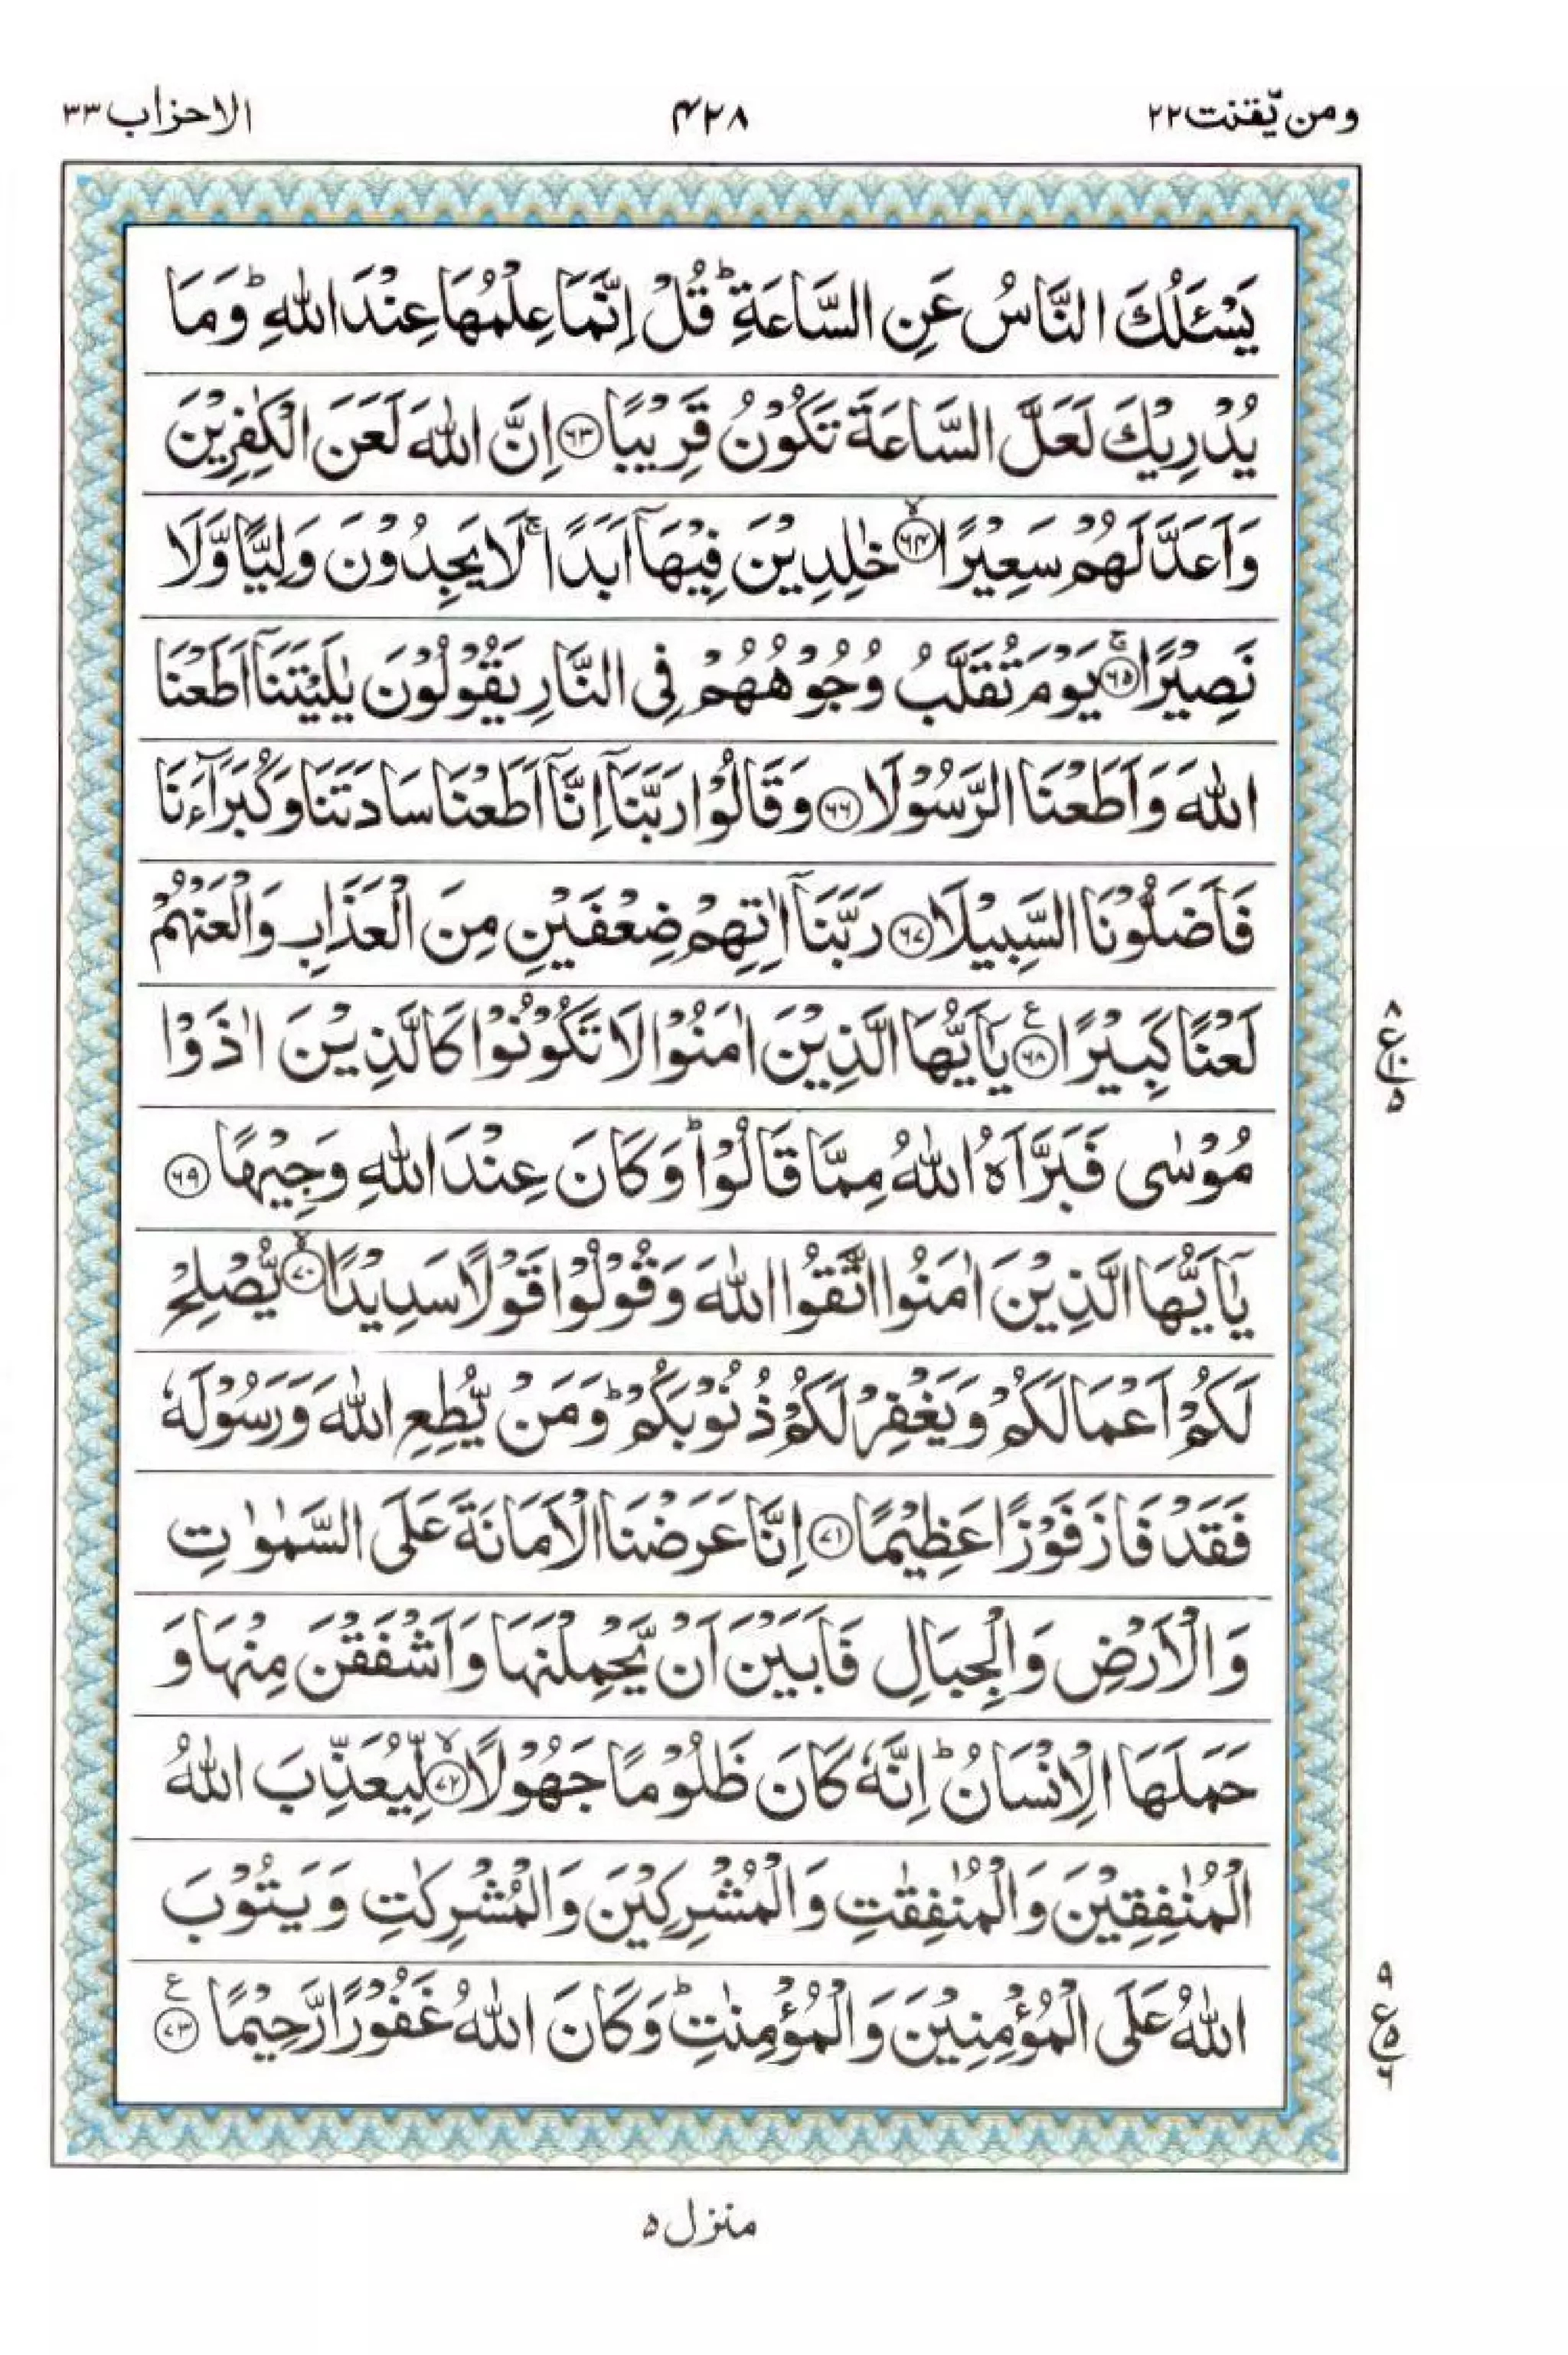 ومن يّقنت ٢٢ ۴۲۸ الاحزاب ٣٣
يَسْـَٔلُكَ النَّاسُ عَنِ السَّاعَةِ ؕ قُلْ اِنَّمَا عِلْمُهَا عِنْدَ اللّٰهِ ؕ وَمَا
يُدْرِيْكَ لَعَلَّ السَّاعَةَ تَكُوْنُ قَرِيْبًا ﴿۶۳﴾ اِنَّ اللّٰهَ لَعَنَ الْكٰفِرِيْنَ
وَاَعَدَّ لَهُمْ سَعِيْرًا ﴿۶۴﴾ۙ خٰلِدِيْنَ فِيْهَاۤ اَبَدًا ۚ لَا يَجِدُوْنَ وَلِيًّا وَّلَا
نَصِيْرًا ﴿۶۵﴾ۚ يَوْمَ تُقَلَّبُ وُجُوْهُهُمْ فِى النَّارِ يَقُوْلُوْنَ يٰلَيْتَنَاۤ اَطَعْنَا
اللّٰهَ وَاَطَعْنَا الرَّسُوْلَا ﴿۶۶﴾ وَقَالُوْا رَبَّنَاۤ اِنَّاۤ اَطَعْنَا سَادَتَنَا وَكُبَرَآءَنَا
فَاَضَلُّوْنَا السَّبِيْلَا ﴿۶۷﴾ رَبَّنَاۤ اٰتِهِمْ ضِعْفَيْنِ مِنَ الْعَذَابِ وَالْعَنْهُمْ
لَعْنًا كَبِيْرًا ﴿۶۸﴾ع يٰۤاَيُّهَا الَّذِيْنَ اٰمَنُوْا لَا تَكُوْنُوْا كَالَّذِيْنَ اٰذَوْا
۸ ع ۱۰ ۵
مُوْسٰى فَبَرَّاَهُ اللّٰهُ مِمَّا قَالُوْا ؕ وَكَانَ عِنْدَ اللّٰهِ وَجِيْهًا ﴿۶۹﴾
يٰۤاَيُّهَا الَّذِيْنَ اٰمَنُوا اتَّقُوا اللّٰهَ وَقُوْلُوْا قَوْلًا سَدِيْدًا ﴿۷۰﴾ۙ يُّصْلِحْ
لَكُمْ اَعْمَالَكُمْ وَيَغْفِرْ لَكُمْ ذُنُوْبَكُمْ ؕ وَمَنْ يُّطِعِ اللّٰهَ وَرَسُوْلَهٗ
فَقَدْ فَازَ فَوْزًا عَظِيْمًا ﴿۷۱﴾ اِنَّا عَرَضْنَا الْاَمَانَةَ عَلَى السَّمٰوٰتِ
وَالْاَرْضِ وَالْجِبَالِ فَاَبَيْنَ اَنْ يَّحْمِلْنَهَا وَاَشْفَقْنَ مِنْهَا وَ
حَمَلَهَا الْاِنْسَانُ ؕ اِنَّهٗ كَانَ ظَلُوْمًا جَهُوْلًا ﴿۷۲﴾ۙ لِّيُعَذِّبَ اللّٰهُ
الْمُنٰفِقِيْنَ وَالْمُنٰفِقٰتِ وَالْمُشْرِكِيْنَ وَالْمُشْرِكٰتِ وَيَتُوْبَ
اللّٰهُ عَلَى الْمُؤْمِنِيْنَ وَالْمُؤْمِنٰتِ ؕ وَكَانَ اللّٰهُ غَفُوْرًا رَّحِيْمًا ﴿۷۳﴾ع
۹ ع ۵ ۶
منزل ۵